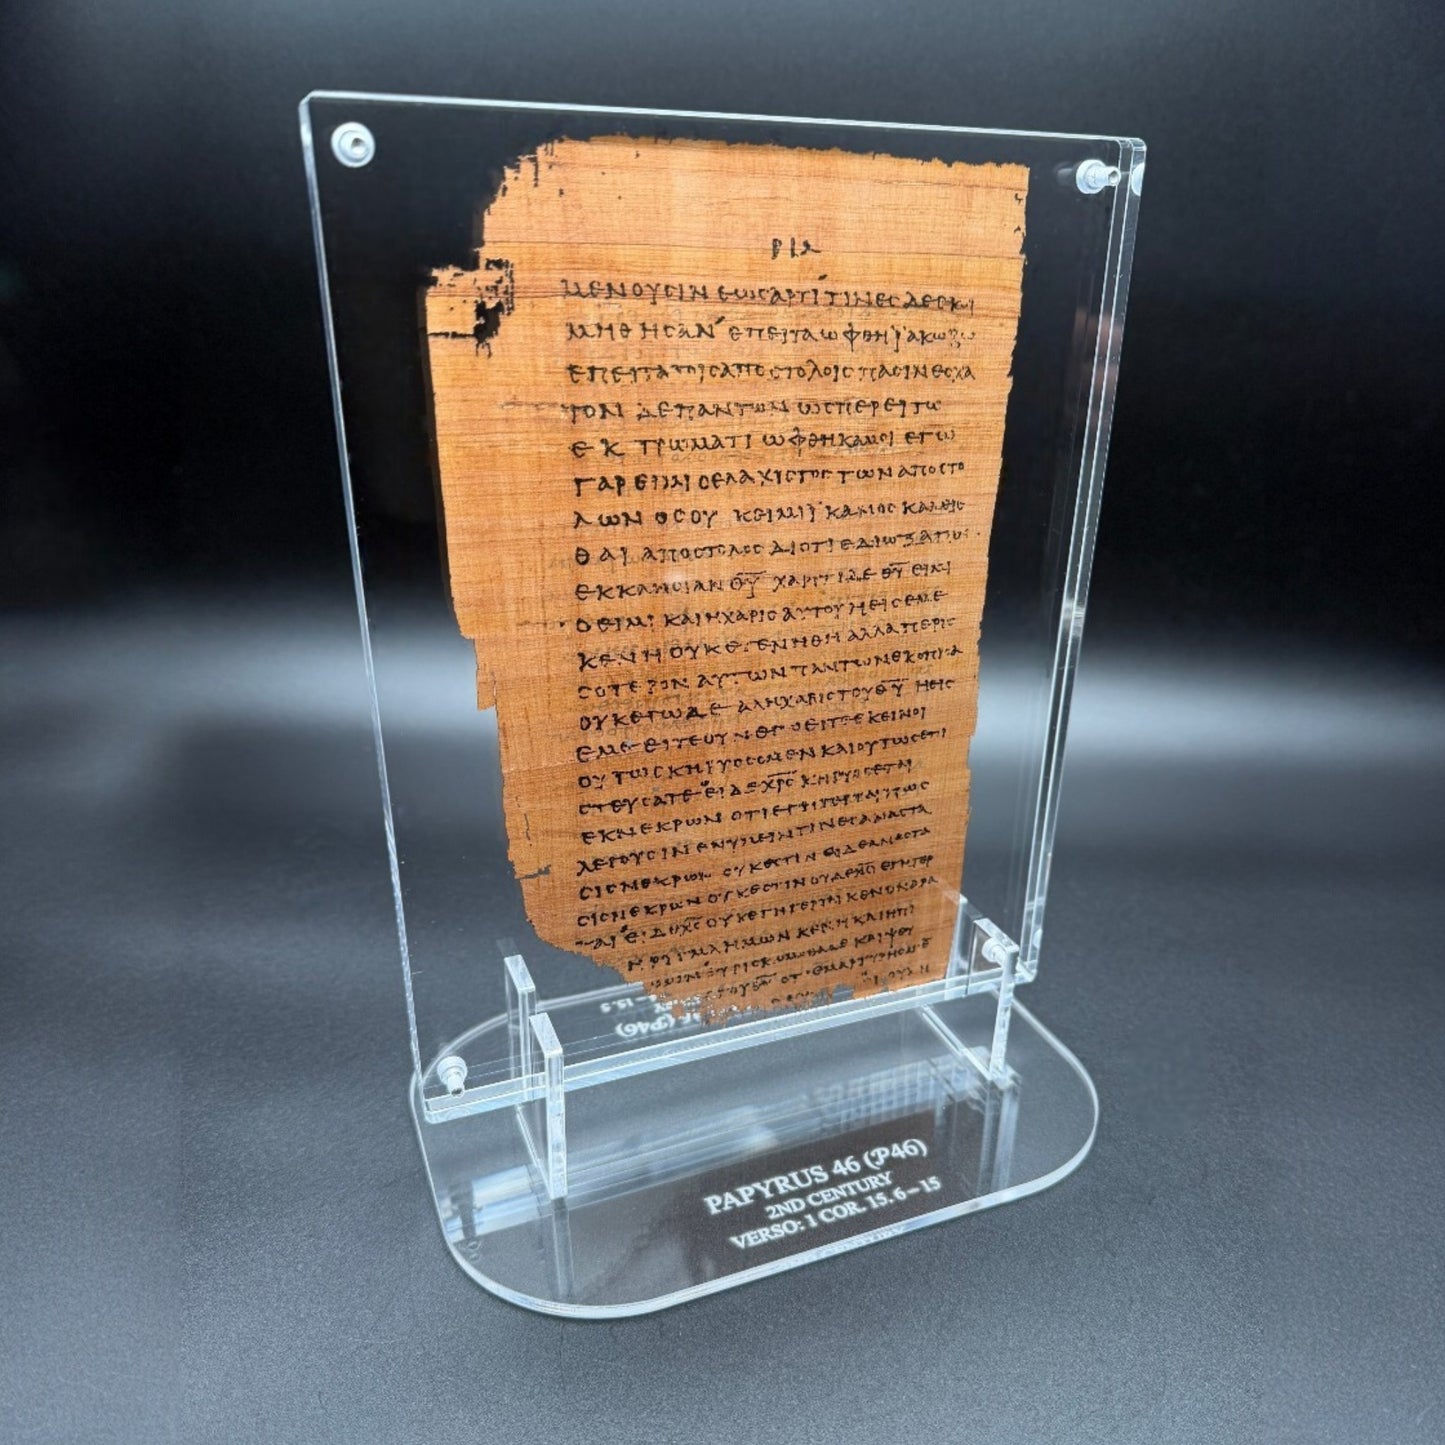 ΡΙΔ
ΜΕΝΟΥϹΙΝ ΕΩϹ ΑΡΤΙ ΤΙΝΕϹ ΔΕ ΕΚΟΙ
ΜΗΘΗϹΑΝ ΕΠΕΙΤΑ ΩΦΘΗ ΙΑΚΩΒΩ
ΕΠΕΙΤΑ ΤΟΙϹ ΑΠΟϹΤΟΛΟΙϹ ΠΑϹΙΝ ΕϹΧΑ
ΤΟΝ ΔΕ ΠΑΝΤΩΝ ΩϹΠΕΡΕΙ ΤΩ
ΕΚΤΡΩΜΑΤΙ ΩΦΘΗ ΚΑΜΟΙ ΕΓΩ
ΓΑΡ ΕΙΜΙ Ο ΕΛΑΧΙϹΤΟϹ ΤΩΝ ΑΠΟϹΤΟ
ΛΩΝ ΟϹ ΟΥΚ ΕΙΜΙ ΙΚΑΝΟϹ ΚΑΛΕΙϹ
ΘΑΙ ΑΠΟϹΤΟΛΟϹ ΔΙΟΤΙ ΕΔΙΩΞΑ ΤΗΝ
ΕΚΚΛΗϹΙΑΝ Θ̅Υ̅ ΧΑΡΙΤΙ ΔΕ Θ̅Υ̅ ΕΙΜΙ
Ο ΕΙΜΙ ΚΑΙ Η ΧΑΡΙϹ ΑΥΤΟΥ Η ΕΙϹ ΕΜΕ
ΚΕΝΗ ΟΥΚ ΕΓΕΝΗΘΗ ΑΛΛΑ ΠΕΡΙϹ
ϹΟΤΕΡΟΝ ΑΥΤΩΝ ΠΑΝΤΩΝ ΕΚΟΠΙΑϹΑ
ΟΥΚ ΕΓΩ ΔΕ ΑΛΛ Η ΧΑΡΙϹ ΤΟΥ Θ̅Υ̅ Η ΕΙϹ
ΕΜΕ ΕΙΤΕ ΟΥΝ ΕΓΩ ΕΙΤΕ ΕΚΕΙΝΟΙ
ΟΥΤΩϹ ΚΗΡΥϹϹΟΜΕΝ ΚΑΙ ΟΥΤΩϹ ΕΠΙ
ϹΤΕΥϹΑΤΕ ΕΙ ΔΕ Χ̅Ρ̅Ϲ̅ ΚΗΡΥϹϹΕΤΑΙ
ΕΚ ΝΕΚΡΩΝ ΟΤΙ ΕΓΗΓΕΡΤΑΙ ΠΩϹ
ΛΕΓΟΥϹΙΝ ΕΝ ΥΜΕΙΝ ΤΙΝΕϹ ΑΝΑϹΤΑ
ϹΙϹ ΝΕΚΡΩΝ ΟΥΚ ΕϹΤΙΝ ΕΙ ΔΕ ΑΝΑϹΤΑ
ϹΙϹ ΝΕΚΡΩΝ ΟΥΚ ΕϹΤΙΝ ΟΥΔΕ Χ̅Ρ̅Ϲ̅ ΕΓΗΓΕΡ
ΤΑΙ ΕΙ ΔΕ Χ̅Ρ̅Ϲ̅ ΟΥΚ ΕΓΗΓΕΡΤΑΙ ΚΕΝΟΝ ΑΡΑ
ΗΜΩΝ ΚΕΝΗ ΚΑΙ Η ΠΙ
PAPYRUS 46 (𝒫46)
2ND CENTURY
VERSO: 1 COR. 15. 6–15